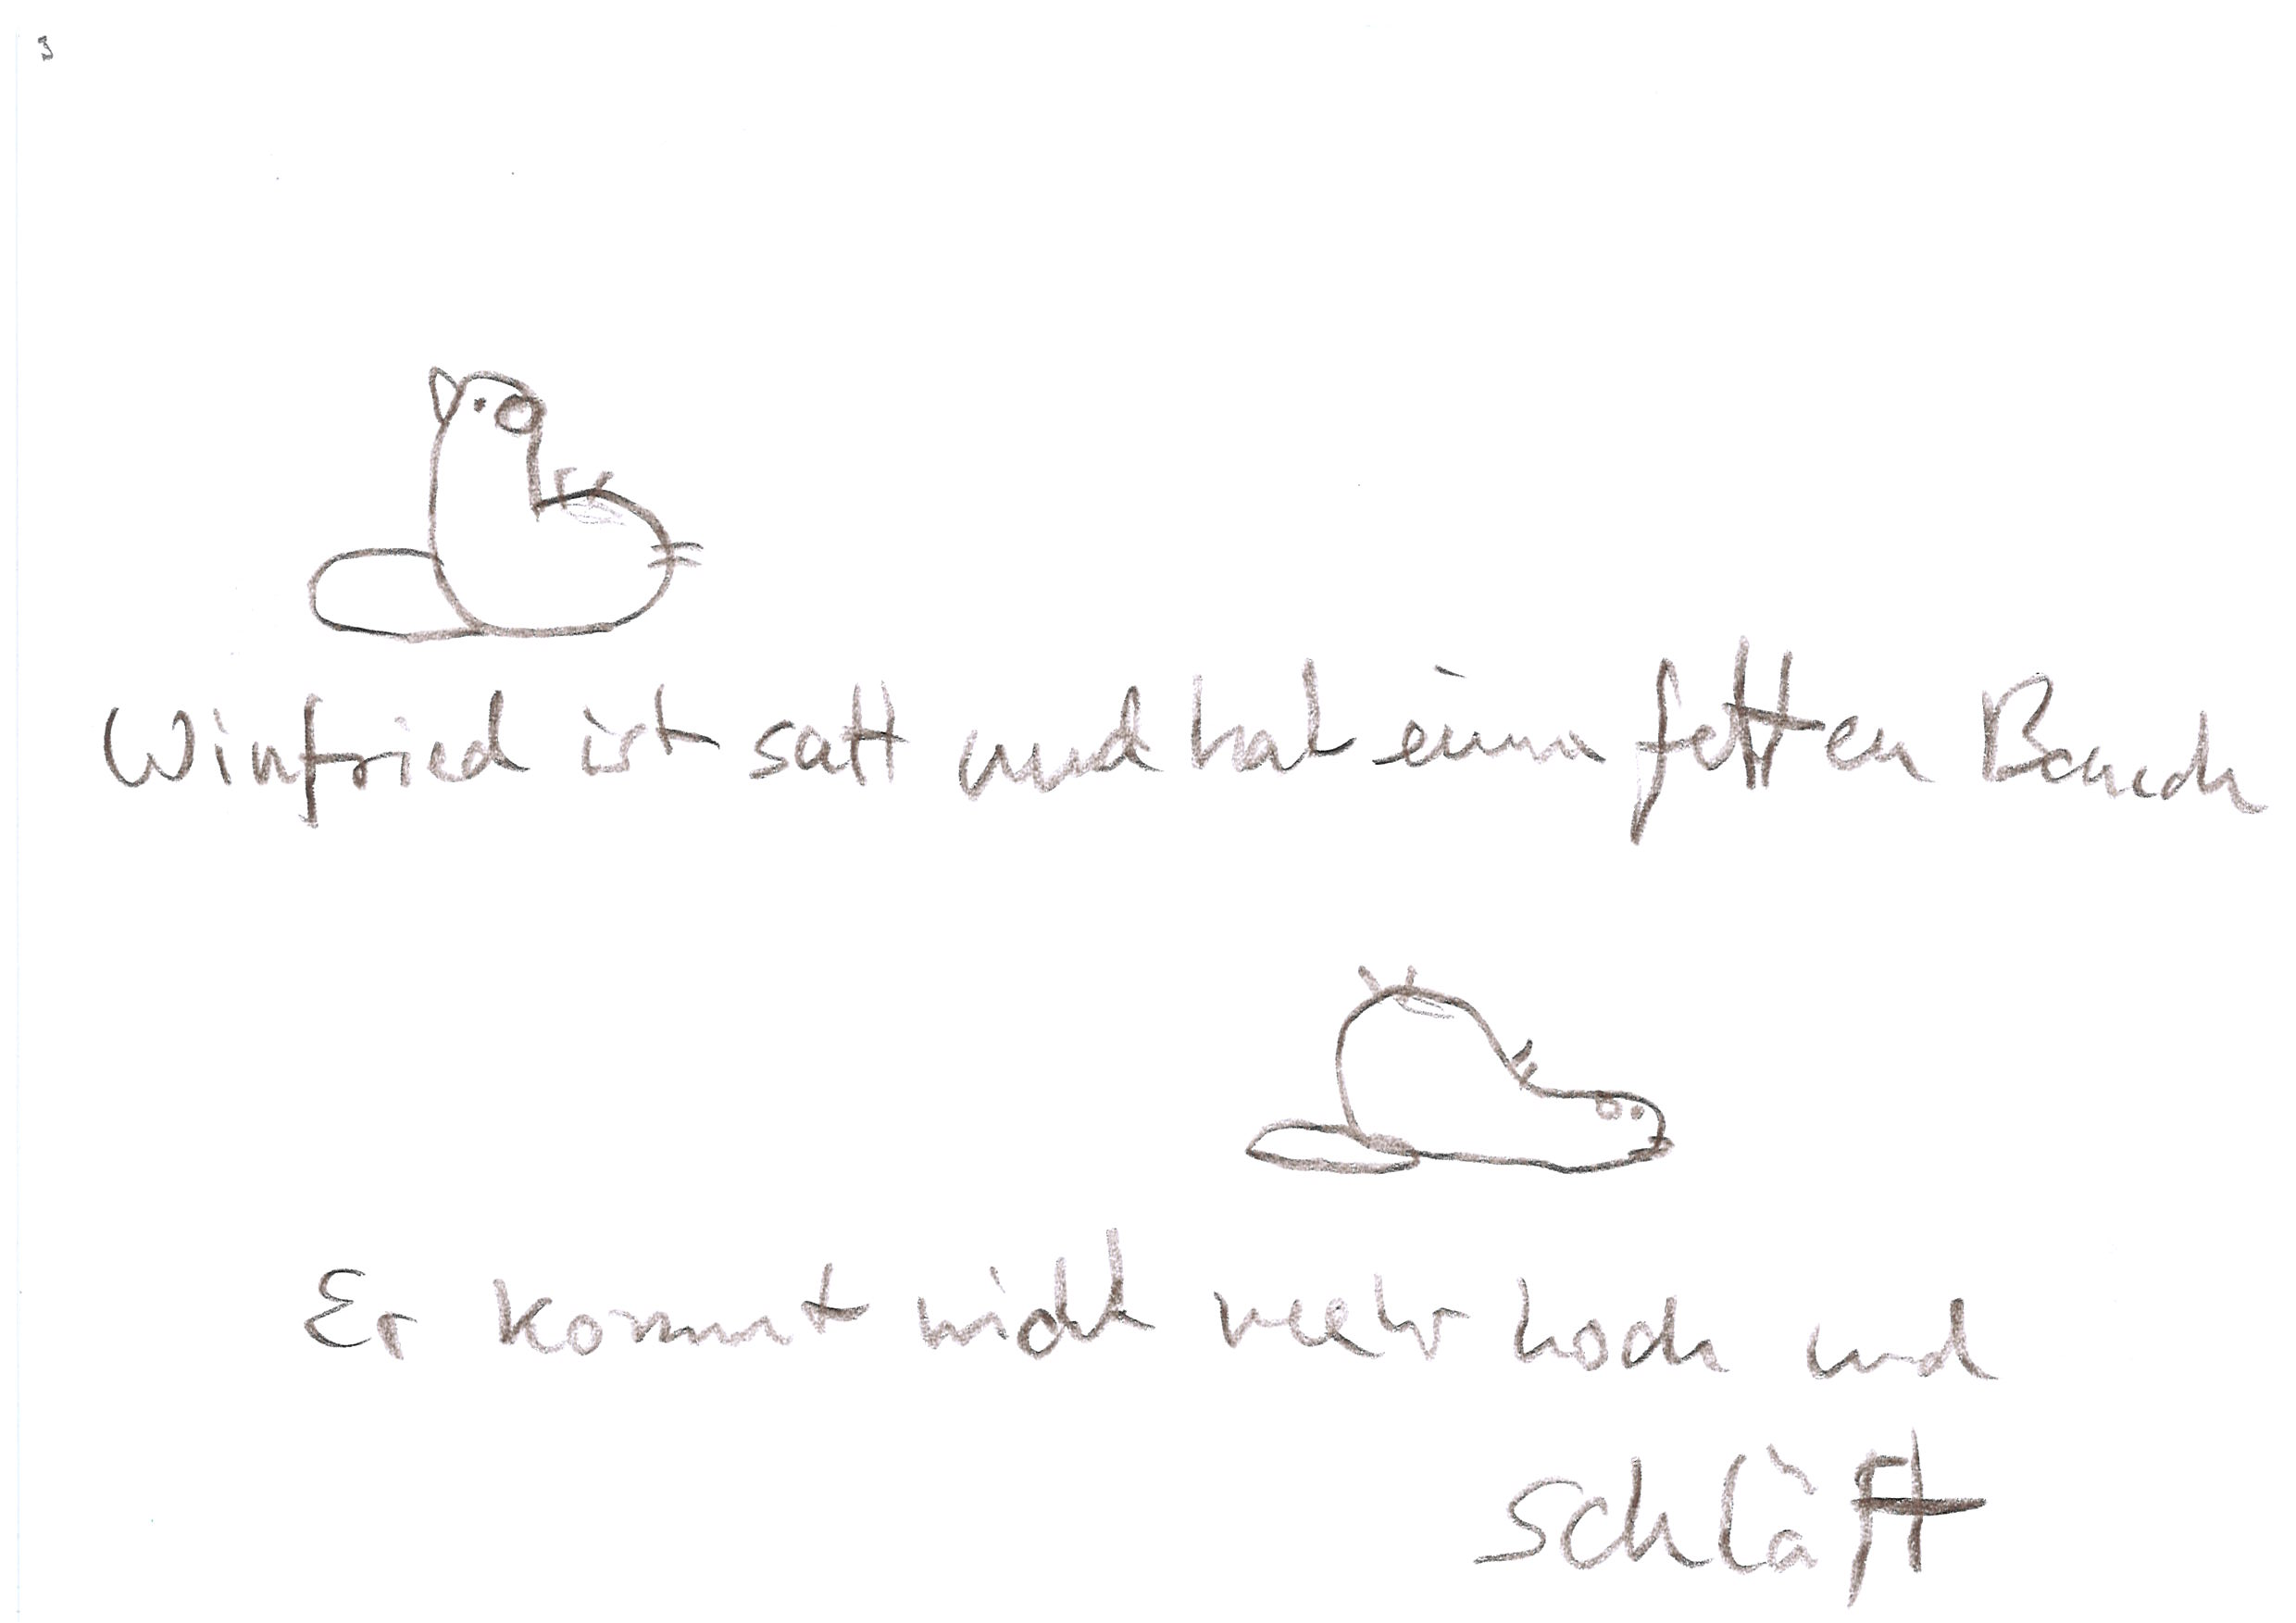 3
Winfried ist satt und hat einen fetten Bauch
Er kommt nicht mehr hoch und
schläft